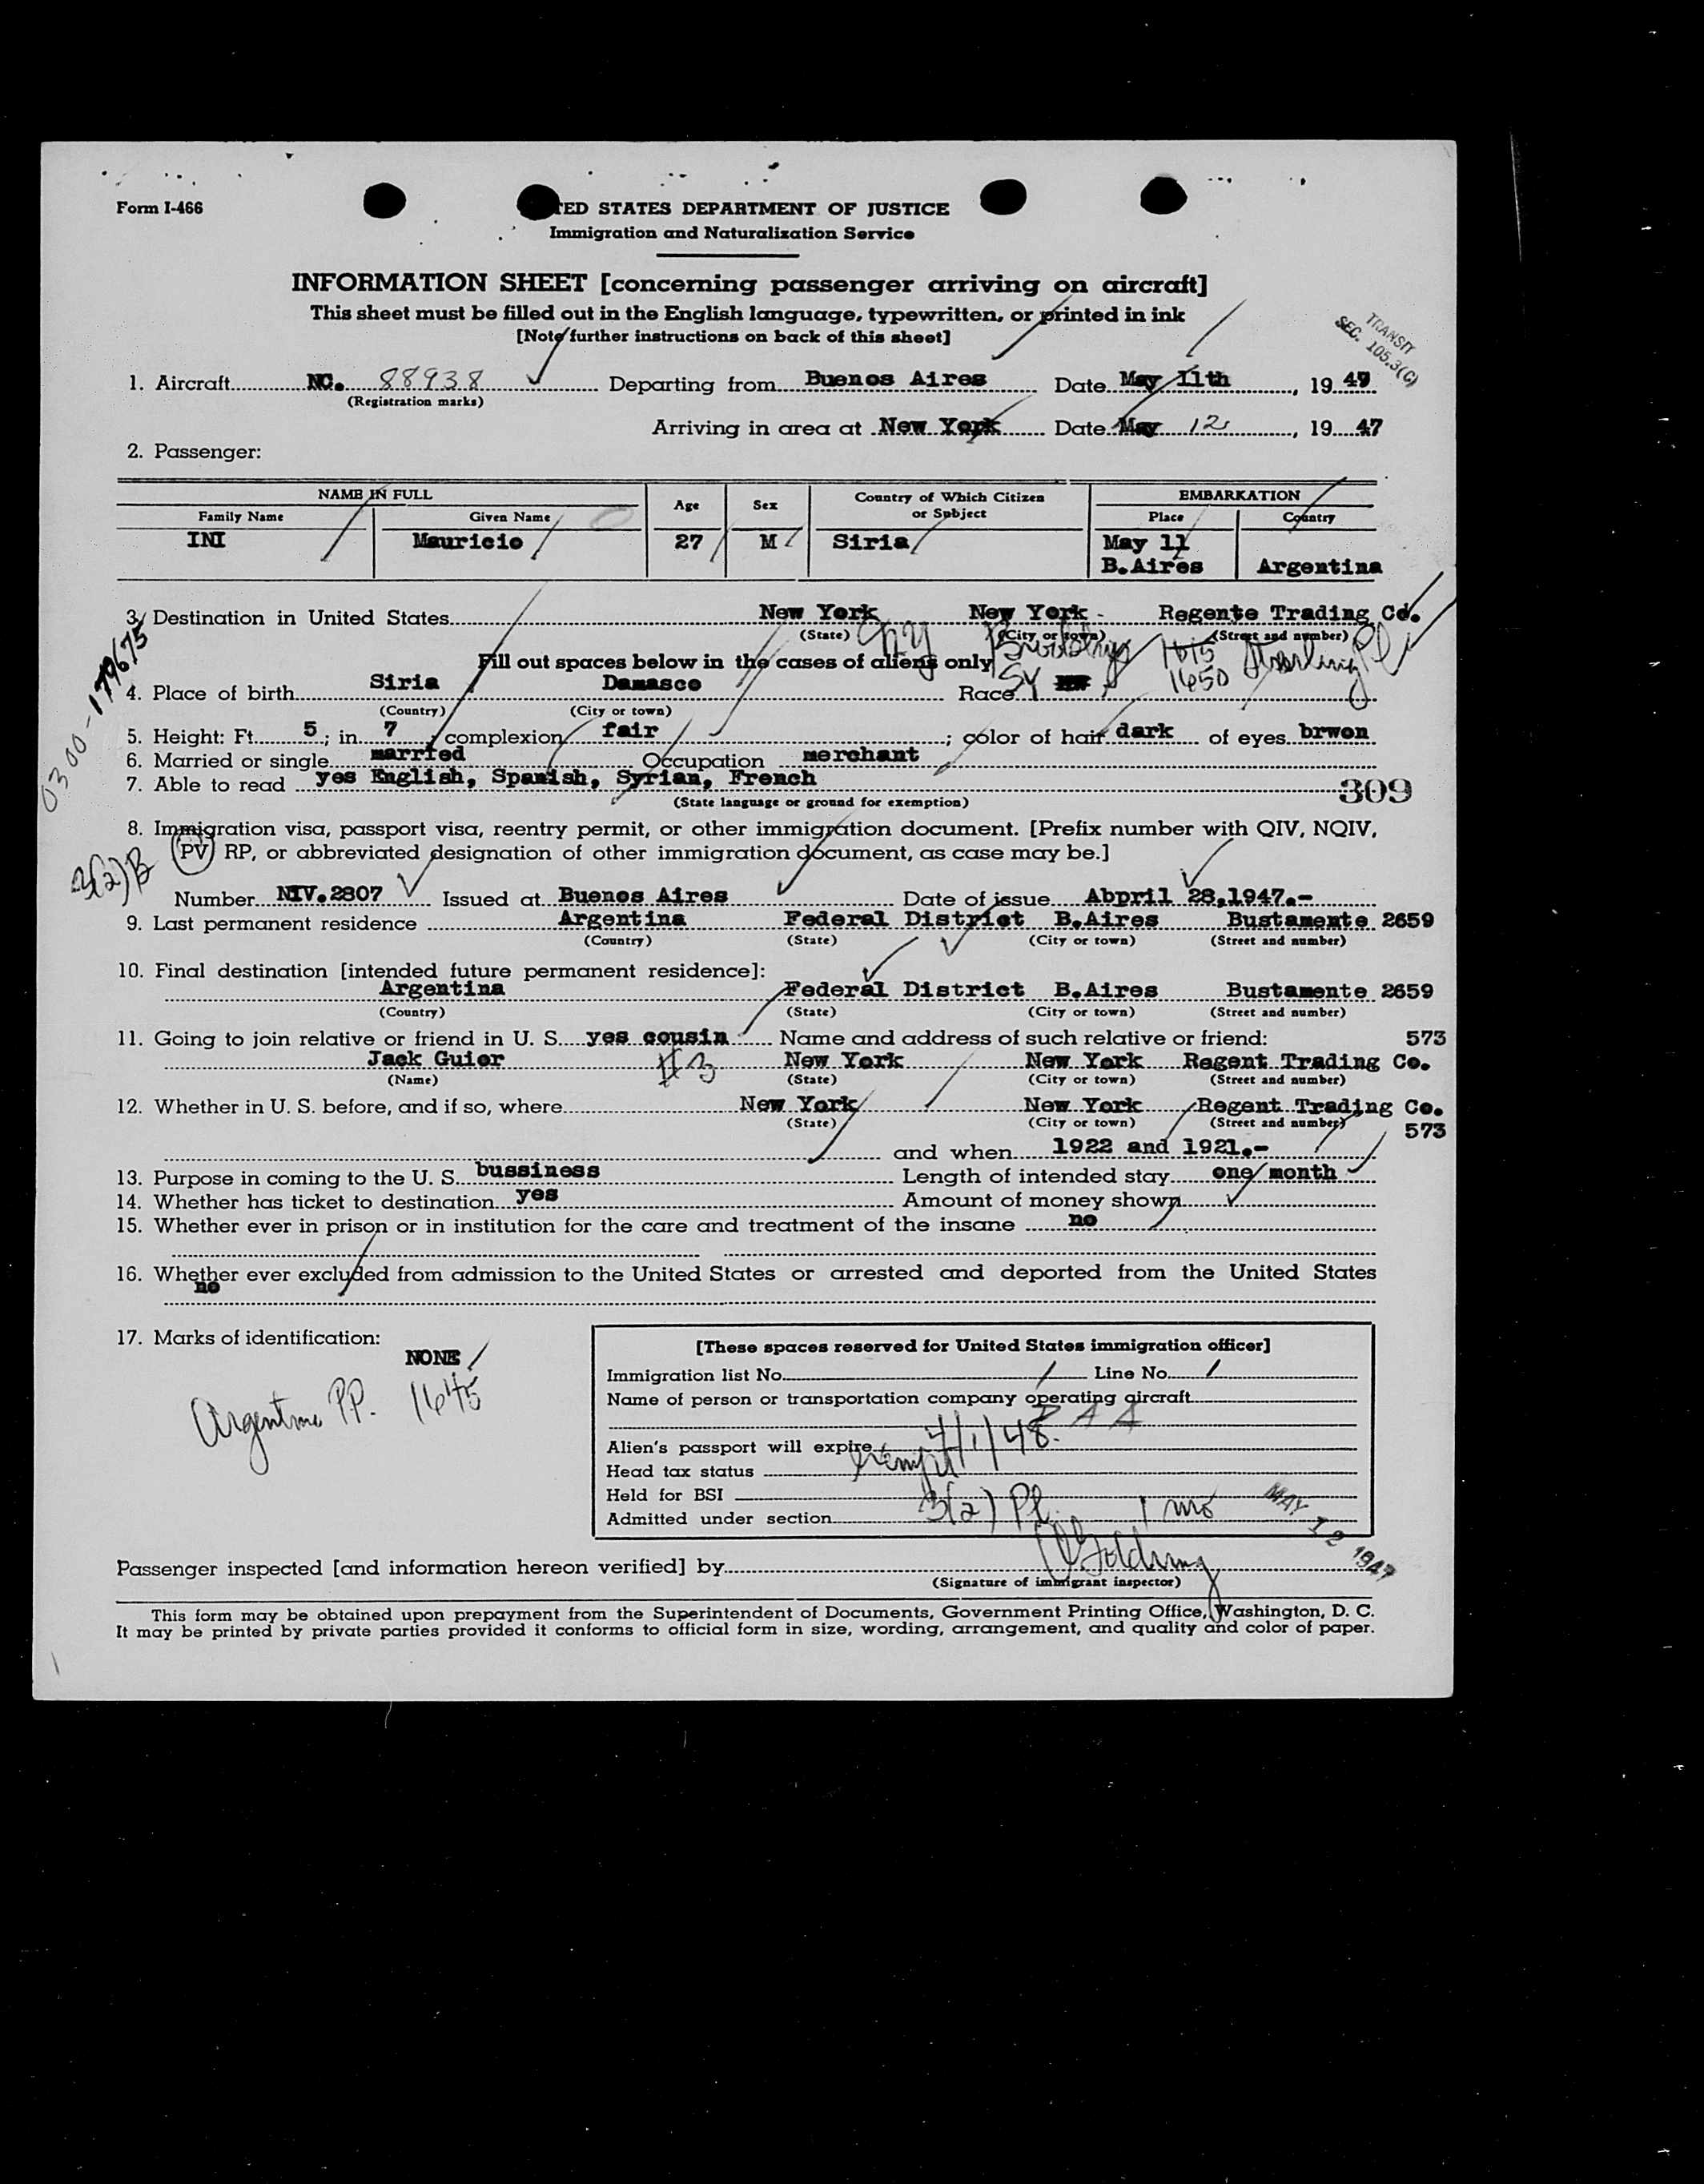 Form I-466
TED STATES DEPARTMENT OF JUSTICE
Immigration and Naturalization Service
INFORMATION SHEET [concerning passenger arriving on aircraft]
This sheet must be filled out in the English language, typewritten, or printed in ink
[Note further instructions on back of this sheet]
TRANSIT
SEC. 105.3(C)
1. Aircraft NC. 88938 Departing from Buenos Aires Date May 11th, 1947
(Registration marks)
Arriving in area at New York Date May 12, 1947
2. Passenger:
NAME IN FULL Age Sex Country of Which Citizen or Subject EMBARKATION
Family Name Given Name Place Country
INI Mauricio 27 M Siria May 11
B.Aires Argentina
3. Destination in United States New York New York - Regente Trading Co.
(State) (City or town) (Street and number)
NY 1615 Sterling Pl
Fill out spaces below in the cases of aliens only
1650
0300-179675
4. Place of birth Siria Damasco Race SY
(Country) (City or town)
5. Height: Ft. 5; in. 7, complexion fair; color of hair dark of eyes brwon
6. Married or single marrfed Occupation merchant
7. Able to read yes English, Spanish, Syrian, French
(State language or ground for exemption)
309
8. Immigration visa, passport visa, reentry permit, or other immigration document. [Prefix number with QIV, NQIV,
PV, RP, or abbreviated designation of other immigration document, as case may be.]
3(2)B
Number NIV.2807 Issued at Buenos Aires Date of issue Abpril 28,1947.-
9. Last permanent residence Argentina Federal District B.Aires Bustamente 2659
(Country) (State) (City or town) (Street and number)
10. Final destination [intended future permanent residence]:
Argentina Federal District B.Aires Bustamente 2659
(Country) (State) (City or town) (Street and number)
11. Going to join relative or friend in U. S. yes cousin Name and address of such relative or friend: 573
Jack Guier #3 New York New York Regent Trading Co.
(Name) (State) (City or town) (Street and number)
12. Whether in U. S. before, and if so, where New York New York Regent Trading Co.
(State) (City or town) (Street and number) 573
and when 1922 and 1921.-
13. Purpose in coming to the U. S. bussiness Length of intended stay one month
14. Whether has ticket to destination yes Amount of money shown
15. Whether ever in prison or in institution for the care and treatment of the insane no
16. Whether ever excluded from admission to the United States or arrested and deported from the United States
no
17. Marks of identification:
NONE
Argentine PP. 1645
[These spaces reserved for United States immigration officer]
Immigration list No. Line No. 1
Name of person or transportation company operating aircraft
PAA
Alien's passport will expire 4/1/48.
Head tax status Exempt
Held for BSI
Admitted under section 3(2) Pl. 1 mo
MAY 12 1947
Passenger inspected [and information hereon verified] by
(Signature of immigrant inspector)
This form may be obtained upon prepayment from the Superintendent of Documents, Government Printing Office, Washington, D. C.
It may be printed by private parties provided it conforms to official form in size, wording, arrangement, and quality and color of paper.